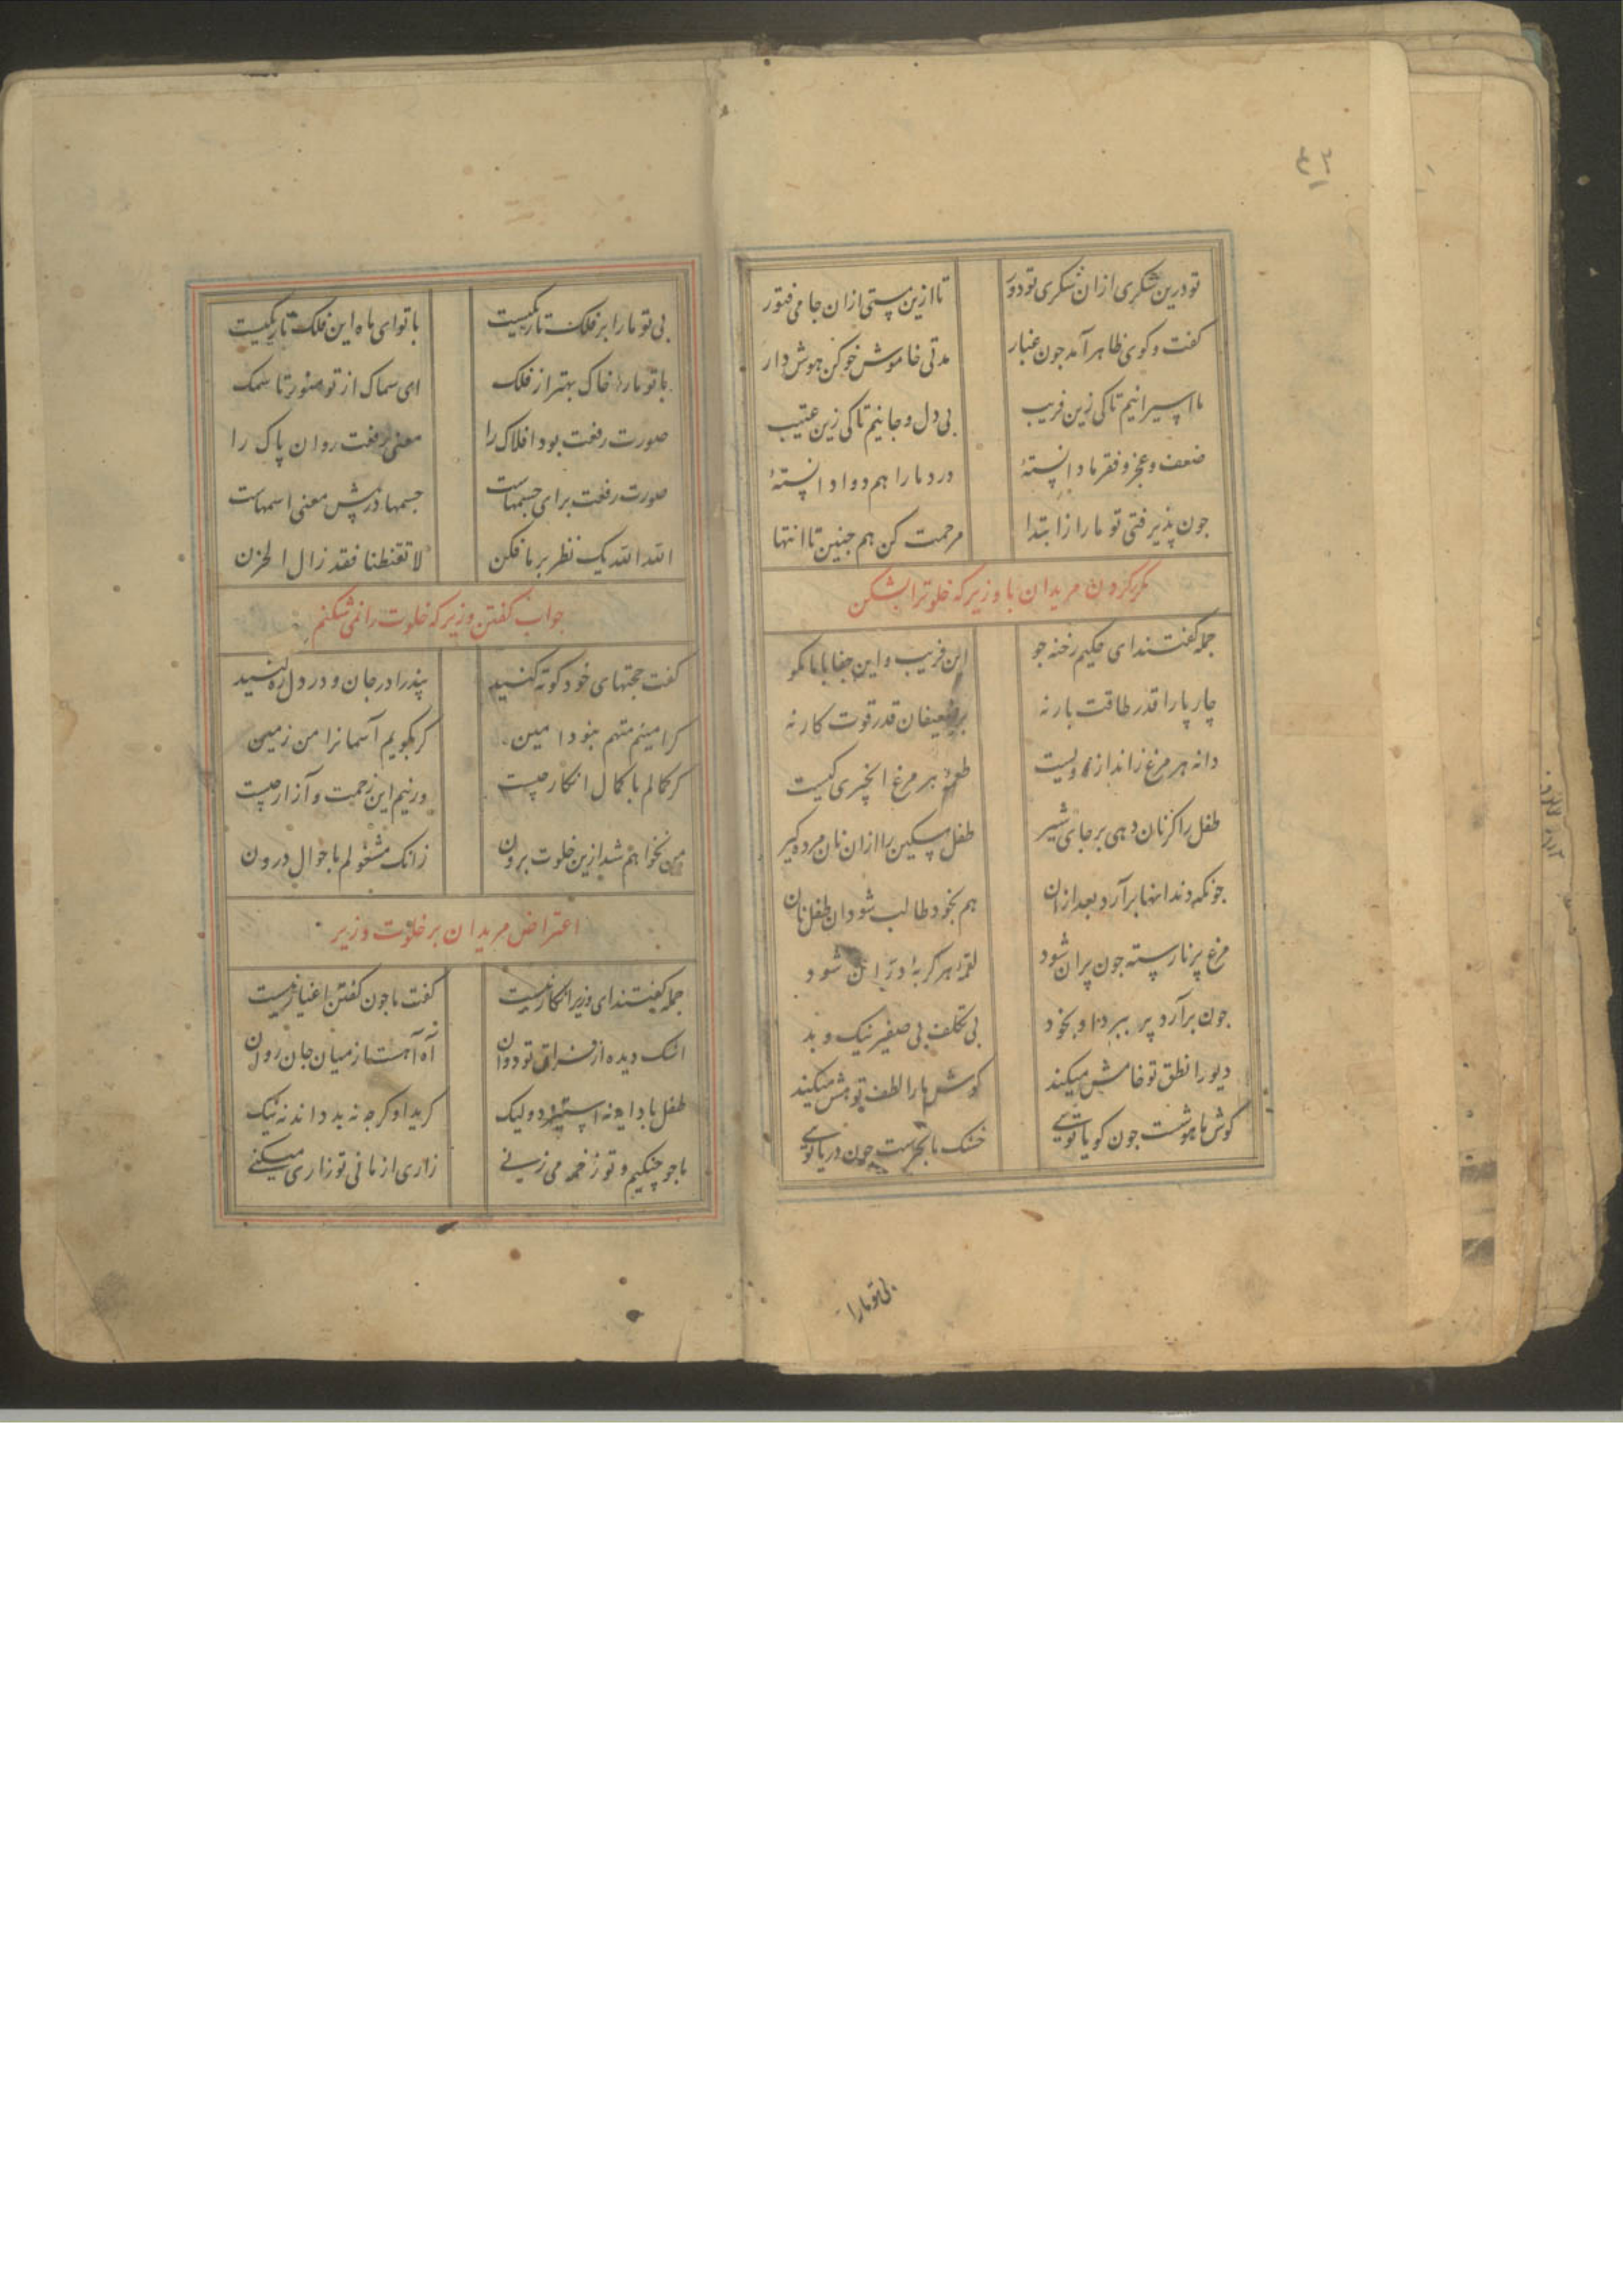 ۴۲
تو درین شکری ازان شکری تو دور تا ازین مستی ازان جامی فتور
کفت و کوی ظاهر آمد جون غبار مدتی خاموش خو کن هوش دار
ما اسیرانیم تا کی زین فریب بی دل و جانیم تا کی زین عتیب
ضعف و عجز و فقر ما دانستهٔ درد ما را هم دوا دانستهٔ
جون پذیرفتی تو ما را ز ابتدا مرحمت کن هم جنین تا انتها
مکر کردن مریدان با وزیر که خلوترا بشکن
جمله کفتند ای حکیم رخنه جو این فریب و این جفا با ما مکو
چار پا را قدر طاقت بار نه بر ضعیفان قدر قوت کار نه
دانه هر مرغ زاندازه ویست طعمهٔ هر مرغ انجیری کیست
طفل را کر نان دهی بر جای شیر طفل مسکین را ازان نان مرده کیر
جونکه دندانها برآرد بعد ازان هم بخود طالب شود ان طفل نان
مرغ پر نارسته جون پران شود لقمهٔ هر کربهٔ دران شود
جون برآرد پر ببرد او بخود بی تکلف بی صفیر نیک و بد
دیو را نطق تو خامش میکند کوش ما را لطف تو هش میکند
کوش ما هوشست جون کویا تویی خشک ما بحرست جون دریا تویی
بی تو ما را
بی تو ما را بر فلک تاریکیست با تو ای ماه این فلک تاریکیست
با تو ما را خاک بهتر از فلک ای سماک از تو منور تا سمک
صورت رفعت بود افلاک را معنی رفعت روان پاک را
صورت رفعت برای جسمهاست جسمها در پیش معنی اسمهاست
الله الله یک نظر بر ما فکن لا تقنطنا فقد زال الحزن
جواب کفتن وزیر که خلوت را نمی شکنم
کفت حجتهای خود کوته کنید پند را در جان و در دل ره کنید
کر امینم متهم نبود امین کر بکویم آسمانرا من زمین
کر کمالم با کمال انکار چیست ور نیم این زحمت و آزار چیست
من نخواهم شد ازین خلوت برون زانک مشغولم باحوال درون
اعتراض مریدان بر خلوت وزیر
جمله کفتند ای وزیر انکار نیست کفت ما جون کفتن اغیار نیست
اشک دیده از فراق تو دوان آه آهست از میان جان روان
طفل با دایه نه استیزد ولیک کرید او کرچه نه بد داند نه نیک
ما جو چنکیم و تو زخمه می زنی زاری از ما نی تو زاری میکنی